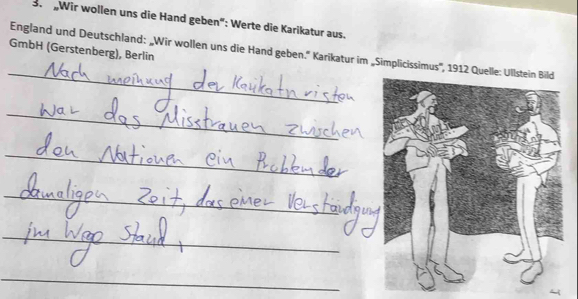 3. „Wir wollen uns die Hand geben“: Werte die Karikatur aus.
England und Deutschland: „Wir wollen uns die Hand geben.“ Karikatur im „Simplicissimus“, 1912 Quelle: Ullstein Bild
GmbH (Gerstenberg), Berlin
Nach meinung der Karikaturisten
war das Misstrauen zwischen
den Nationen ein Problem der
damaligen Zeit, das einer Verständigung
im Wege stand.